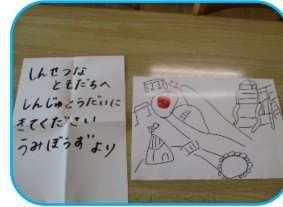 しんせつな
ともだちへ
しんじゅとうだいに
きてください
うみぼうずより